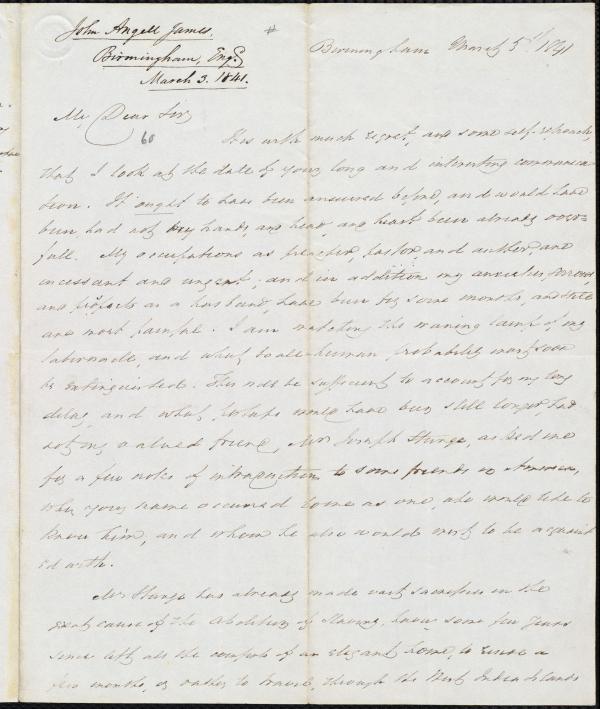 John Angell James,
Birmingham, Eng.
March 3. 1841.
#
Birmingham March 3rd 1841
My Dear Sir,
60
It is with much regret, and some self-reproach,
that I look at the date of your long and interesting communica
tion. It ought to have been answered before, and would have
been, had not my hands, my head, and heart been already over-
full. My occupations as preacher, pastor and author, are
incessant and urgent; and in addition my anxieties, sorrows,
and prospects as a husband, have been for some months, and still
are most painful. I am watching the waning lamp of my
tabernacle, and what to all human probability must soon
be extinguished. This will be sufficient to account for my long
delay, and what, perhaps would have been still longer, had
not my valued friend, Mr Joseph Sturge, asked me
for a few notes of introduction to some friends in America,
when your name occurred to me as one, who would like to
know him, and whom he also would wish to be acquaint
ed with.
Mr Sturge has already made vast sacrifices in the
great cause of the Abolition of Slavery, having some few years
since left all the comforts of an elegant home, to
few months, or rather to travel, through the West India Islands